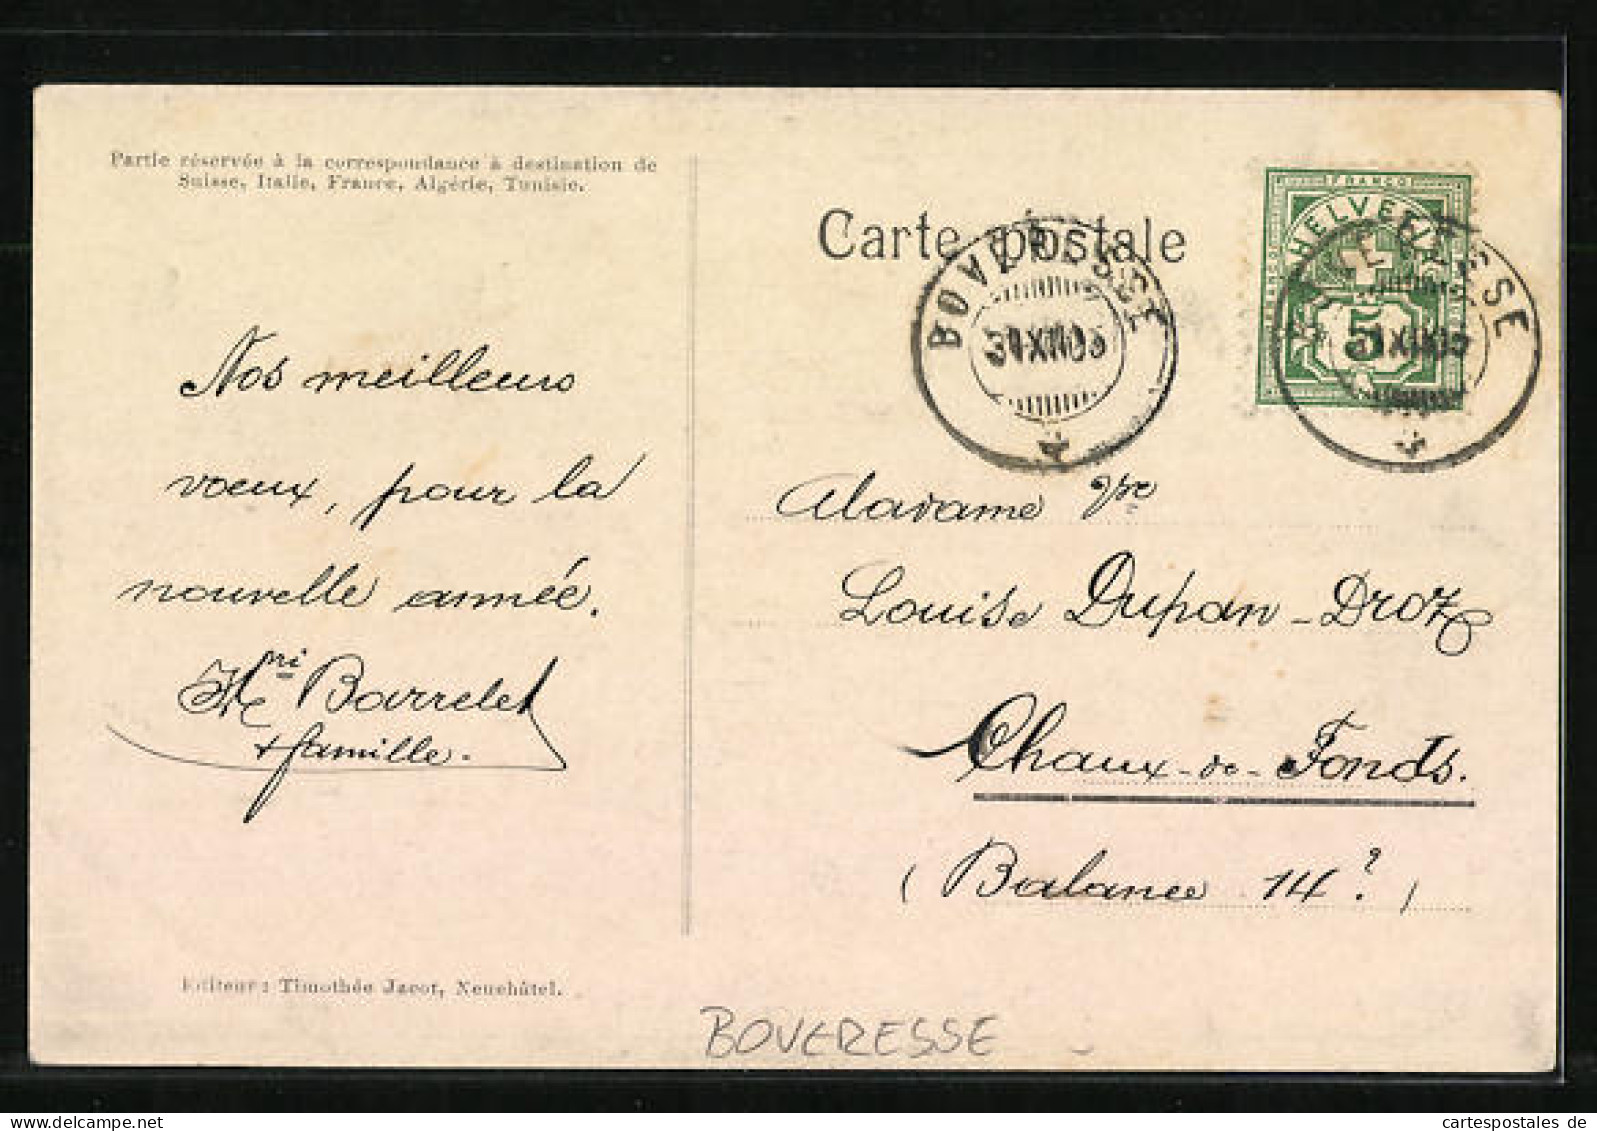 Partie réservée à la correspondance à destination de
Suisse, Italie, France, Algérie, Tunisie.
Carte postale
FRANCO
HELVETIA
5
BOVERESSE
31 XII 05
BOVERESSE
31 XII 05
Nos meilleurs
voeux, pour la
nouvelle année.
Hri Barrelet
+ famille.
Madame Vve
Louise Dupan-Droz
Chaux-de-Fonds.
(Balance 14?)
Editeur: Timothée Jacot, Neuchâtel.
BOVERESSE
cartespostales de